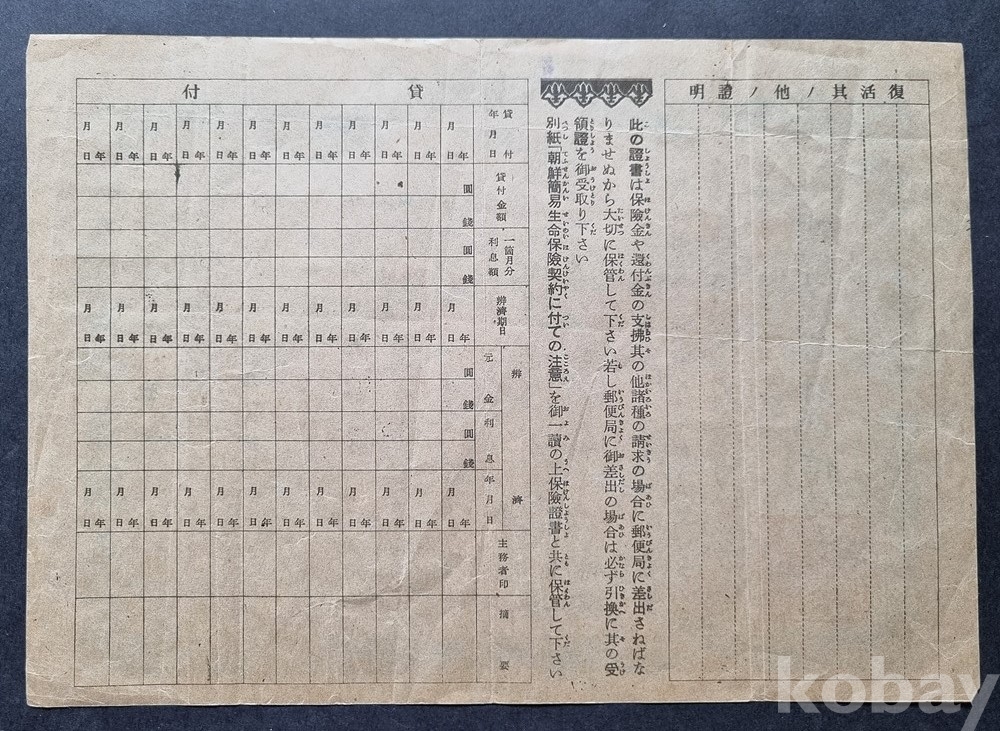 復活其ノ他ノ證明
此の證書は保險金や還付金の支拂其の他諸種の請求の場合に郵便局に差出さねばな
りませぬから大切に保管して下さい若し郵便局に御差出の場合は必ず引換に其の受
領證を御受取り下さい
別紙「朝鮮簡易生命保險契約に付ての注意」を御一讀の上保險證書と共に保管して下さい
貸付
貸付年月日
年月日 年月日 年月日 年月日 年月日 年月日 年月日 年月日 年月日 年月日 年月日 年月日
貸付金額
圓
錢
一箇月分利息額
圓
錢
辨濟期日
年月日 年月日 年月日 年月日 年月日 年月日 年月日 年月日 年月日 年月日 年月日 年月日
辨濟
元金
圓
錢
利息
圓
錢
年月日
年月日 年月日 年月日 年月日 年月日 年月日 年月日 年月日 年月日 年月日 年月日 年月日
主務者印
摘要
kobay